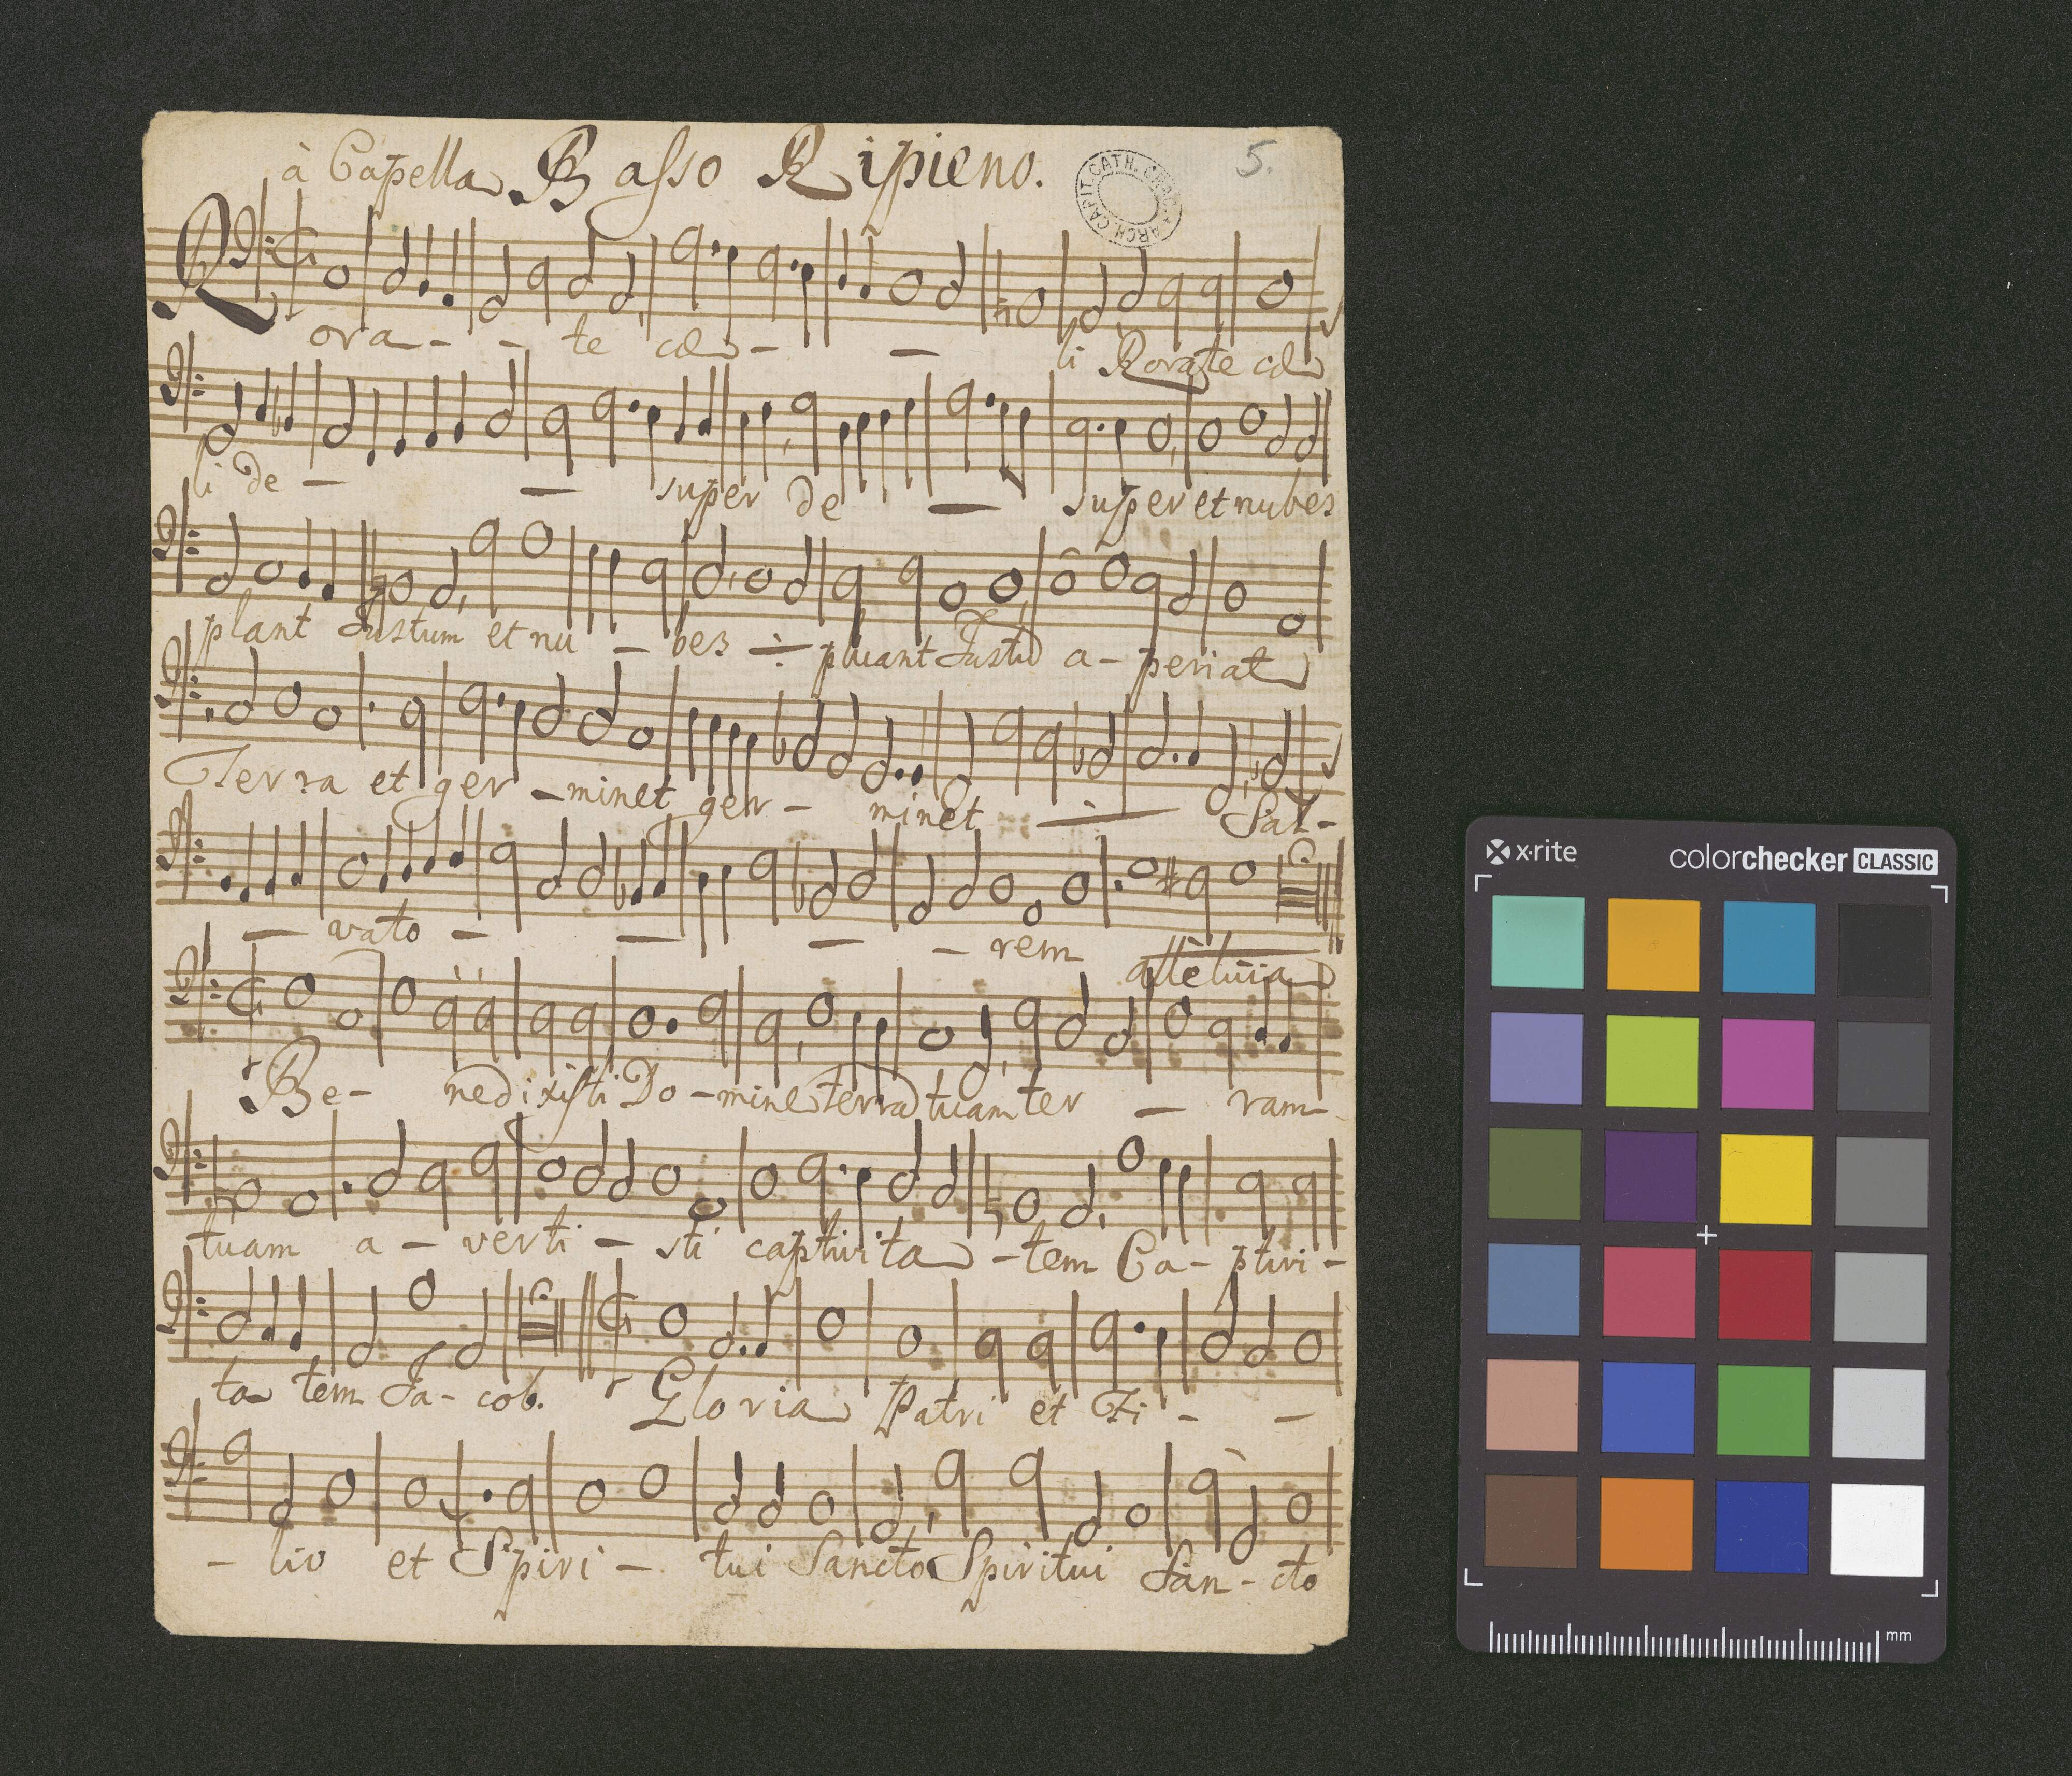 à Capella Basso Ripieno. 5.
ARCH. CAPIT. CATH. CRAC.
Rora - - te cæ - - li Rorate cæ
li de - - super de - super et nubes
plant Justum et nu - bes ÷ pluant Justū a - periat
Terra et ger - minet ger - minet ÷ Sal -
- vato - - - - rem alleluia
Be - nedixisti Domine terrā tuam ter - ram
tuam a - verti - sti captivita - tem Ca - ptivi -
ta tem Ja - cob. Gloria Patri et Fi - -
- lio et Spiri - tui Sancto Spiritui San - cto
x·rite colorchecker CLASSIC
mm